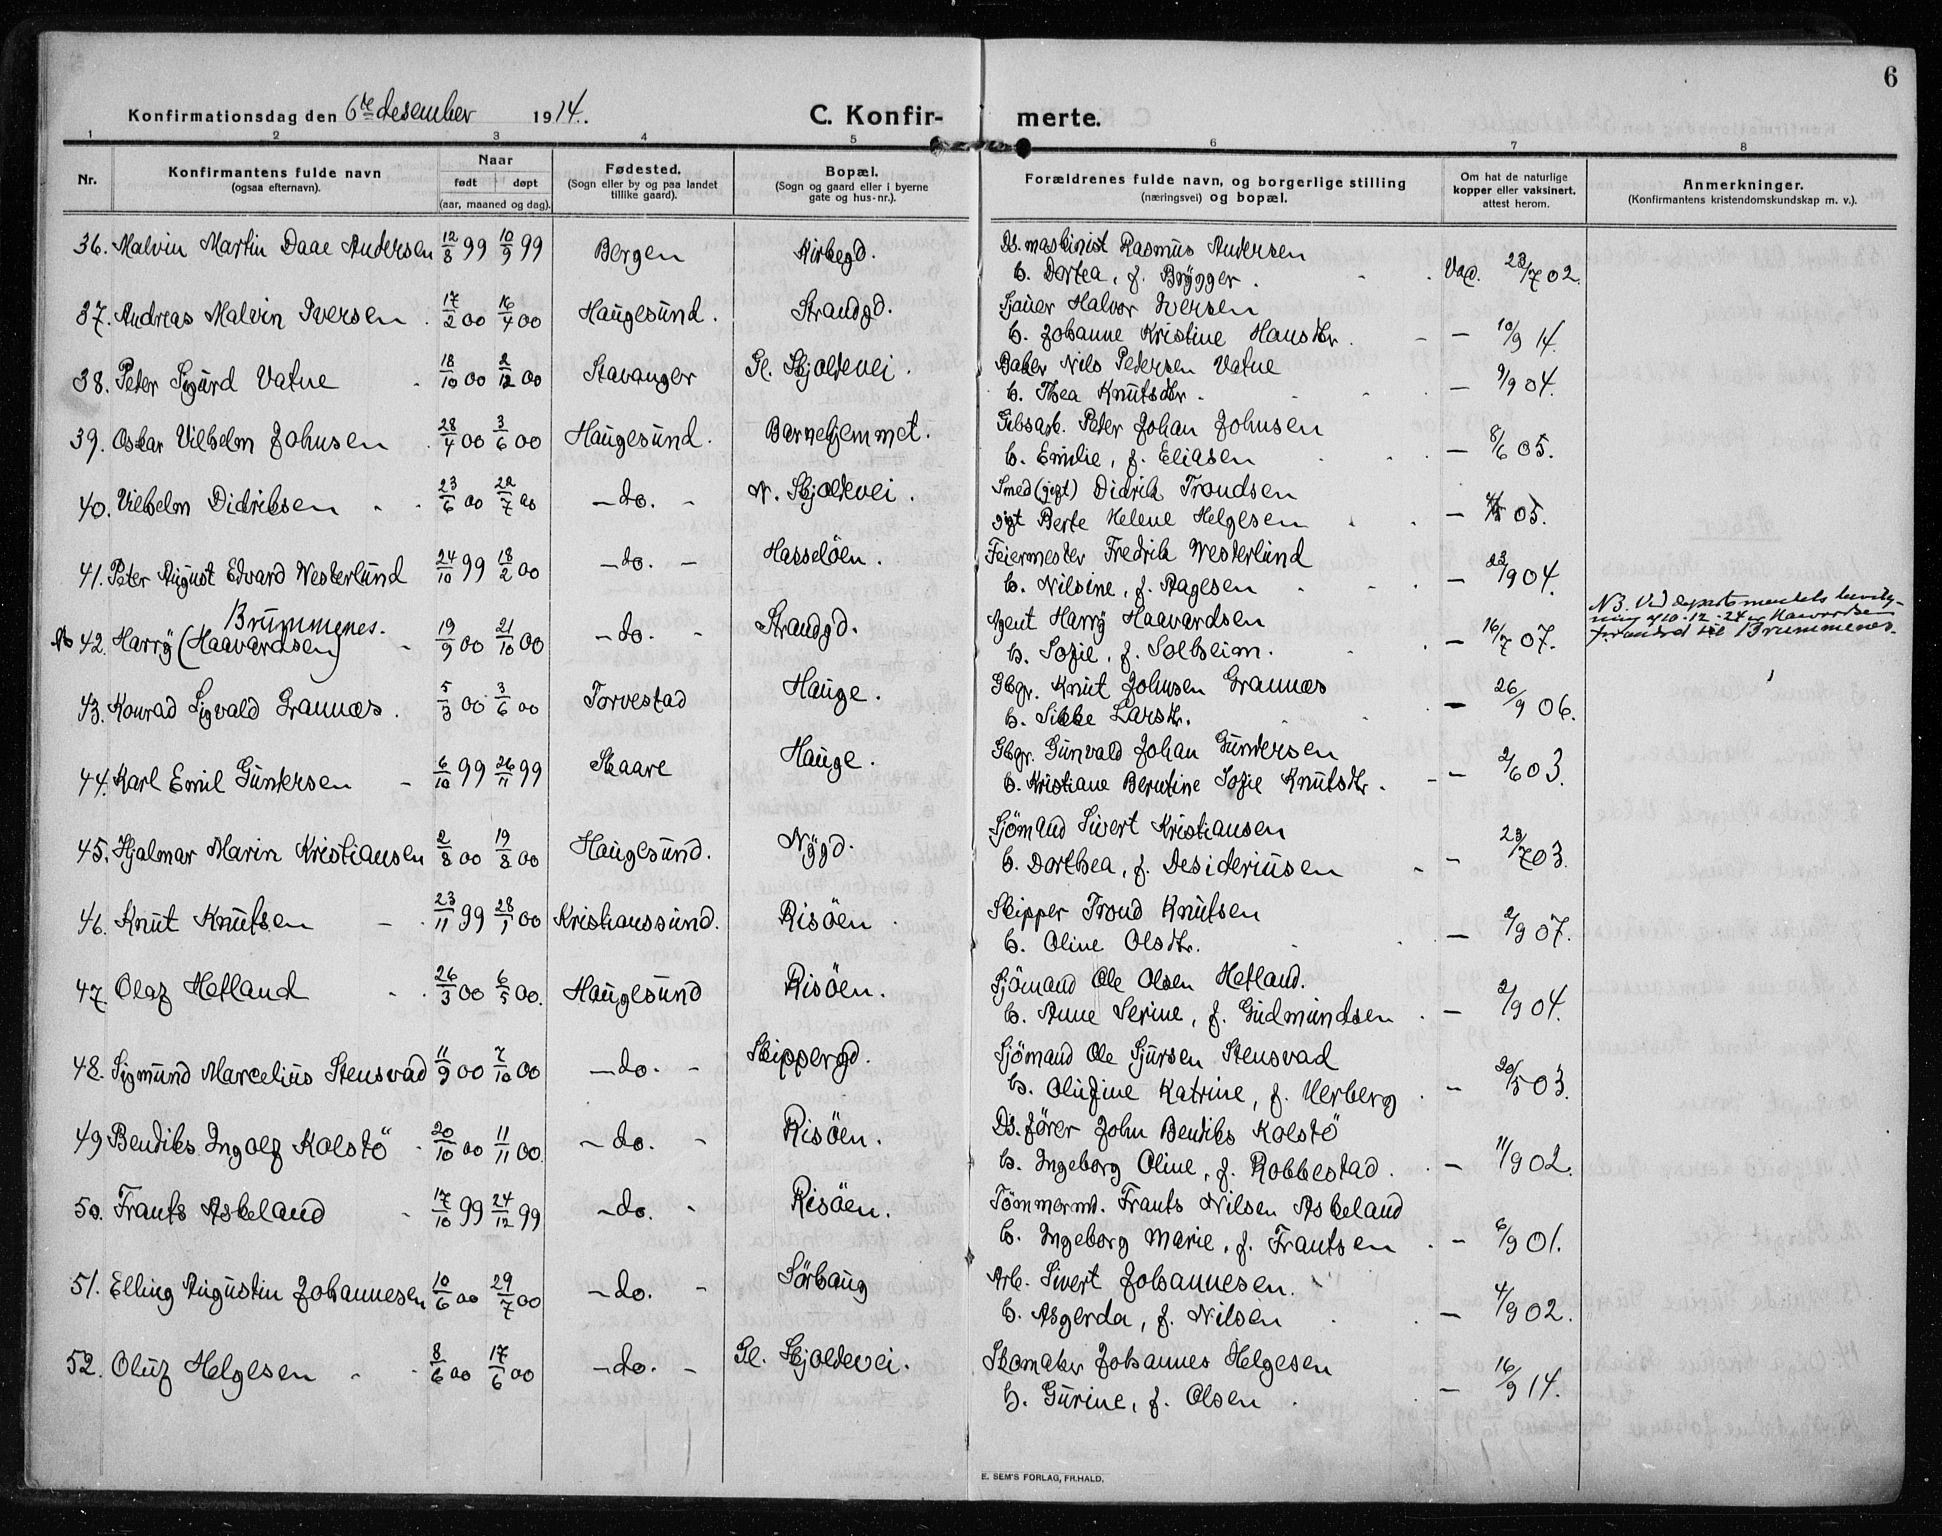 6
Konfirmationsdag den 6te desember 1914.
C. Konfirmerte.
1 2 3 4 5 6 7 8
Nr.
Konfirmantens fulde navn
(ogsaa efternavn).
Naar
født døpt
(aar, maaned og dag).
Fødested.
(Sogn eller by og paa landet
tillike gaard).
Bopæl.
(Sogn og gaard eller i byerne
gate og hus-nr.).
Forældrenes fulde navn, og borgerlige stilling
(næringsvei) og bopæl.
Om hat de naturlige
kopper eller vaksinert.
attest herom.
Anmerkninger.
(Konfirmantens kristendomskundskap m. v.).
36. Malvin Martin Daae Andersen 12/8 99 10/9 99 Bergen Kirkegd. Ds. maskinist Rasmus Andersen
h. Dortea, f. Brygger. Vac. 23/7 02.
37. Andreas Malvin Iversen 17/2 00 16/4 00 Haugesund. Strandgd. Sjauer Halvor Iversen
h. Johanne Kristine Hansdtr. — 10/9 14.
38. Peter Sigurd Vatne 18/10 00 2/12 00 Stavanger Gl. Skjoldevei. Baker Nils Petersen Vatne
h. Thea Knutsdtr. — 9/9 04.
39. Oskar Vilhelm Johnsen 28/4 00 3/6 00 Haugesund. Barnehjemmet. Gibsarb. Peter Johan Johnsen
h. Emilie, f. Eliasen — 8/6 05.
40. Vilhelm Didriksen 23/6 00 22/7 00 — do. — N. Skjoldevei. Smed (gift) Didrik Trondsen
gift Berte Helene Helgesen — 05.
41. Peter August Edvard Westerlund 24/10 99 18/2 00 — do. — Hasseløen. Feiermester Fredrik Westerlund
h. Nilsine, f. Aagesen — 23/9 04.
Brummenes.
Nb 42. Harry (Haavardsen) 19/9 00 21/10 00 — do. — Strandgd. Agent Harry Haavardsen
h. Sofie, f. Solheim. — 16/7 07.
NB. Ved departementets bevilg-
ning af 10-12-24 Haavardsen
forandret til Brummenes.
43. Konrad Sigvald Grannæs. 5/3 00 3/6 00 Torvestad Hauge. Gbgr. Knut Johnsen Grannæs
h. Sikke Larsdtr. — 26/9 06.
44. Karl Emil Gundersen 6/10 99 26/11 99 Skaare Hauge. Gbgr. Gunvald Johan Gundersen
h. Kristiane Berntine Sofie Knutsdtr. — 2/6 03.
45. Hjalmar Marin Kristiansen 2/8 00 19/8 00 Haugesund. Nygd. Sjømand Sivert Kristiansen
h. Dorthea, f. Desideriusen — 23/7 03.
46. Knut Knutsen 23/11 99 28/1 00 Kristianssund. Risøen. Skipper Trond Knutsen
h. Oline Olsdtr. — 2/9 07.
47. Olaf Hetland 26/3 00 6/5 00. Haugesund Risøen. Sjømand Ole Olsen Hetland.
h. Anne Serine, f. Gudmundsen — 2/9 04.
48. Sigmund Marcelius Stensvad 11/9 00 7/10 00 — do. — Skippergd. Sjømand Ole Sjursen Stensvad
h. Olufine Katrine, f. Verberg — 20/5 03.
49 Bendiks Ingolf Kolstö 20/10 00 11/11 00. — do. — Risøen. Ds. fører John Bendiks Kolstö
h. Ingeborg Oline, f. Robbestad. — 11/9 02.
50. Frants Askeland 17/10 99 24/12 99 — do. — Risøen. Tømmermd. Frants Nilsen Askeland
h. Ingeborg Marie, f. Frantsen — 6/9 01.
51. Elling Augustin Johannesen 10/6 00 29/7 00 — do. — Sørhaug Arb. Sivert Johannesen.
h. Asgerda, f. Nilsen — 4/9 02.
52. Oluf Helgesen 8/6 00 17/6 00 — do. — Gl. Skjoldevei. Skomaker Johannes Helgesen
h. Gurine, f. Olsen — 16/9 14.
E. SEM'S FORLAG, FR.HALD.